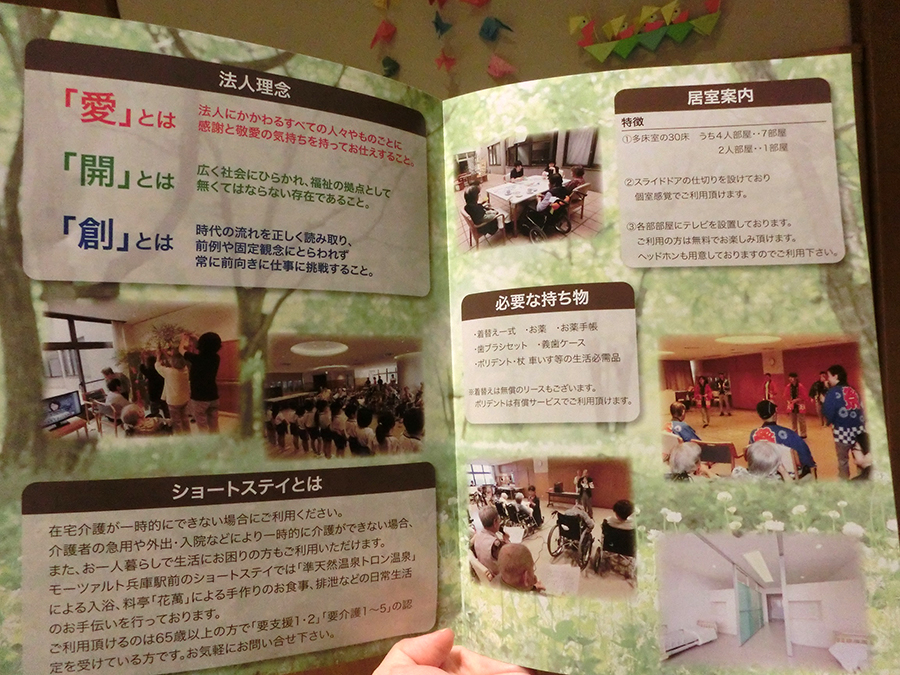 法人理念
「愛」とは
法人にかかわるすべての人々やものごとに
感謝と敬愛の気持ちを持ってお仕えすること。
「開」とは
広く社会にひらかれ、福祉の拠点として
無くてはならない存在であること。
「創」とは
時代の流れを正しく読み取り、
前例や固定観念にとらわれず
常に前向きに仕事に挑戦すること。
ショートステイとは
在宅介護が一時的にできない場合にご利用ください。
介護者の急用や外出・入院などにより一時的に介護ができない場合、
また、お一人暮らしで生活にお困りの方もご利用いただけます。
モーツァルト兵庫駅前のショートステイでは「準天然温泉トロン温泉」
による入浴、料亭「花萬」による手作りのお食事、排泄などの日常生活
のお手伝いを行っております。
ご利用頂けるのは65歳以上の方で「要支援1・2」「要介護1〜5」の認
定を受けている方です。お気軽にお問い合せ下さい。
居室案内
特徴
①多床室の30床 うち4人部屋・・7部屋
2人部屋・・1部屋
②スライドドアの仕切りを設けており
個室感覚でご利用頂けます。
③各部部屋にテレビを設置しております。
ご利用の方は無料でお楽しみ頂けます。
ヘッドホンも用意しておりますのでご利用下さい。
必要な持ち物
・着替え一式 ・お薬 ・お薬手帳
・歯ブラシセット ・義歯ケース
・ポリデント・杖 車いす等の生活必需品
※着替えは無償のリースもございます。
ポリデントは有償サービスでご利用頂けます。